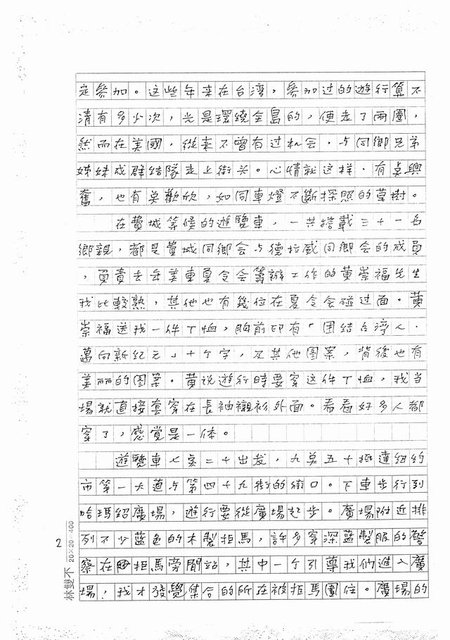 定參加。這些年來在台灣，參加过的遊行算不
清有多少次，光是環繞全島的，便走了兩圈，
然而在美國，從來不曾有过机会，与同鄉兄弟
姊妹成群結隊走上街头。心情就这样，有點興
奮，也有點歡欣，如同車燈不斷探照的草樹。
在費城等候的遊覽車，一共搭載三十一名
鄉親，都是費城同鄉会与德拉威同鄉会的成員
，負責去年美東夏令会籌辦工作的黃崇福先生
我比較熟，其他也有幾位在夏令会碰过面。黃
崇福送我一件T恤，胸前印有「团結台灣人，
邁向新紀元」十个字，及其他图案，背後也有
美丽的图案。黃說遊行時要穿这件T恤，我当
場就直接套穿在長袖襯衫外面。看看好多人都
穿了，感覚是一体。
遊覽車七点二十出发，九点五十抵達紐約
市第一大道与第四十九街的街口。下車步行到
哈瑪紹廣場，遊行要從廣場起步。廣場附近排
列不少藍色的木製拒馬，許多穿深藍製服的警
察在拒馬旁閒站，其中一个引導我們進入廣
場，我才發覺集合的所在被拒馬圍住。廣場的
2
林雙不
20×20=400